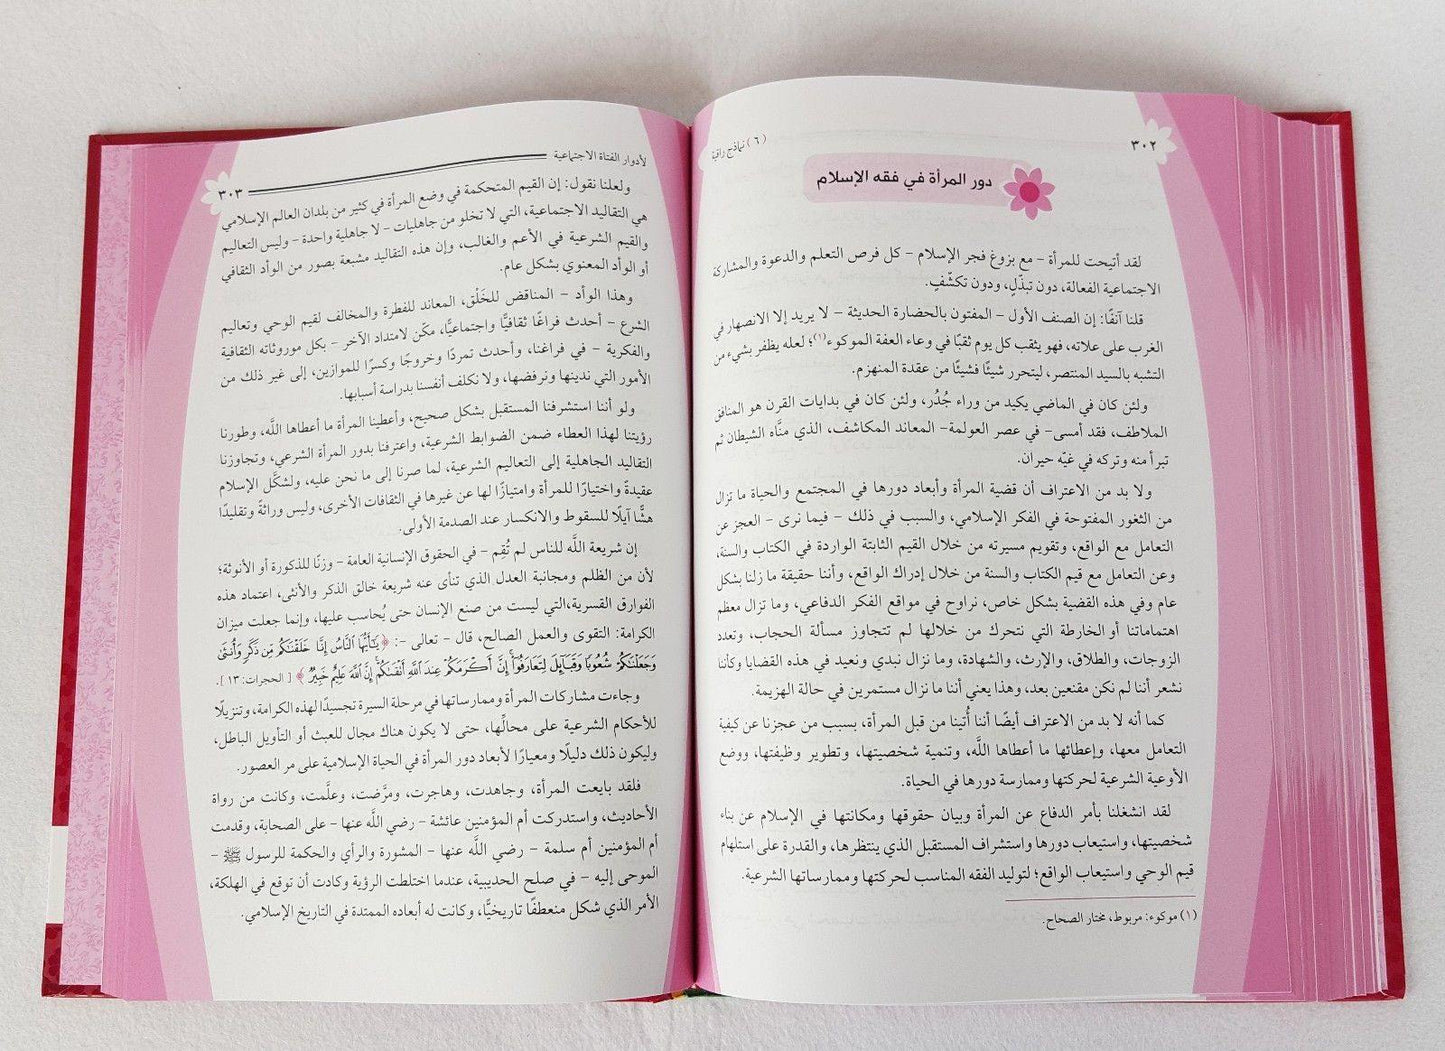 ٣٠٢
(٦) نماذج راقية
دور المرأة في فقه الإسلام
لقد أتيحت للمرأة – مع بزوغ فجر الإسلام – كل فرص التعلم والدعوة والمشاركة
الاجتماعية الفعالة، دون تبذّلٍ، ودون تكشّفٍ.
قلنا آنفًا: إن الصنف الأول – المفتون بالحضارة الحديثة – لا يريد إلا الانصهار في
الغرب على علاته، فهو يثقب كل يوم ثقبًا في وعاء العفة الموكوء(١)؛ لعله يظفر بشيء من
التشبه بالسيد المنتصر، ليتحرر شيئًا فشيئًا من عقدة المنهزم.
ولئن كان في الماضي يكيد من وراء جُدُر، ولئن كان في بدايات القرن هو المنافق
الملاطف، فقد أمسى– في عصر العولمة– المعاند المكاشف، الذي منَّاه الشيطان ثم
تبرأ منه وتركه في غيّه حيران.
ولا بد من الاعتراف أن قضية المرأة وأبعاد دورها في المجتمع والحياة ما تزال
من الثغور المفتوحة في الفكر الإسلامي، والسبب في ذلك – فيما نرى – العجز عن
التعامل مع الواقع، وتقويم مسيرته من خلال القيم الثابتة الواردة في الكتاب والسنة،
وعن التعامل مع قيم الكتاب والسنة من خلال إدراك الواقع، وأننا حقيقة ما زلنا بشكل
عام وفي هذه القضية بشكل خاص، نراوح في مواقع الفكر الدفاعي، وما تزال معظم
اهتماماتنا أو الخارطة التي نتحرك من خلالها لم تتجاوز مسألة الحجاب، وتعدد
الزوجات، والطلاق، والإرث، والشهادة، وما نزال نبدي ونعيد في هذه القضايا وكأننا
نشعر أننا لم نكن مقنعين بعد، وهذا يعني أننا ما نزال مستمرين في حالة الهزيمة.
كما أنه لا بد من الاعتراف أيضًا أننا أُتينا من قبل المرأة، بسبب من عجزنا عن كيفية
التعامل معها، وإعطائها ما أعطاها اللَّه، وتنمية شخصيتها، وتطوير وظيفتها، ووضع
الأوعية الشرعية لحركتها وممارسة دورها في الحياة.
لقد انشغلنا بأمر الدفاع عن المرأة وبيان حقوقها ومكانتها في الإسلام عن بناء
شخصيتها، واستيعاب دورها واستشراف المستقبل الذي ينتظرها، والقدرة على استلهام
قيم الوحي واستيعاب الواقع؛ لتوليد الفقه المناسب لحركتها وممارساتها الشرعية.
(١) موكوء: مربوط، مختار الصحاح.
لأدوار الفتاة الاجتماعية
٣٠٣
ولعلنا نقول: إن القيم المتحكمة في وضع المرأة في كثير من بلدان العالم الإسلامي
هي التقاليد الاجتماعية، التي لا تخلو من جاهليات – لا جاهلية واحدة – وليس التعاليم
والقيم الشرعية في الأعم والغالب، وإن هذه التقاليد مشبعة بصور من الوأد الثقافي
أو الوأد المعنوي بشكل عام.
وهذا الوأد – المناقض للخَلْق، المعاند للفطرة والمخالف لقيم الوحي وتعاليم
الشرع – أحدث فراغًا ثقافيًّا واجتماعيًّا، مكّن لامتداد الآخر – بكل موروثاته الثقافية
والفكرية – في فراغنا، وأحدث تمردًا وخروجًا وكسرًا للموازين، إلى غير ذلك من
الأمور التي ندينها ونرفضها، ولا نكلف أنفسنا بدراسة أسبابها.
ولو أننا استشرفنا المستقبل بشكل صحيح، وأعطينا المرأة ما أعطاها اللَّه، وطورنا
رؤيتنا لهذا العطاء ضمن الضوابط الشرعية، واعترفنا بدور المرأة الشرعي، وتجاوزنا
التقاليد الجاهلية إلى التعاليم الشرعية، لما صرنا إلى ما نحن عليه، ولشكَّل الإسلام
عقيدةً واختيارًا للمرأة وامتيازًا لها عن غيرها في الثقافات الأخرى، وليس وراثةً وتقليدًا
هشًّا آيلًا للسقوط والانكسار عند الصدمة الأولى.
إن شريعة اللَّه للناس لم تُقِم – في الحقوق الإنسانية العامة – وزنًا للذكورة أو الأنوثة؛
لأن من الظلم ومجانبة العدل الذي تنأى عنه شريعة خالق الذكر والأنثى، اعتماد هذه
الفوارق القسرية،التي ليست من صنع الإنسان حتى يُحاسب عليها، وإنما جعلت ميزان
الكرامة: التقوى والعمل الصالح، قال – تعالى –: ﴿ يَٰٓأَيُّهَا ٱلنَّاسُ إِنَّا خَلَقْنَٰكُم مِّن ذَكَرٍ وَأُنثَىٰ
وَجَعَلْنَٰكُمْ شُعُوبًا وَقَبَآئِلَ لِتَعَارَفُوٓا۟ إِنَّ أَكْرَمَكُمْ عِندَ ٱللَّهِ أَتْقَىٰكُمْ إِنَّ ٱللَّهَ عَلِيمٌ خَبِيرٌ ﴾ [ الحجرات: ١٣ ].
وجاءت مشاركات المرأة وممارساتها في مرحلة السيرة تجسيدًا لهذه الكرامة، وتنزيلًا
للأحكام الشرعية على محالِّها، حتى لا يكون هناك مجال للعبث أو التأويل الباطل،
وليكون ذلك دليلًا ومعيارًا لأبعاد دور المرأة في الحياة الإسلامية على مر العصور.
فلقد بايعت المرأة، وجاهدت، وهاجرت، ومرَّضت، وعلَّمت، وكانت من رواة
الأحاديث، واستدركت أم المؤمنين عائشة – رضي اللَّه عنها – على الصحابة، وقدمت
أم المؤمنين أم سلمة – رضي اللَّه عنها – المشورة والرأي والحكمة للرسول ﷺ –
الموحى إليه – في صلح الحديبية، عندما اختلطت الرؤية وكادت أن توقع في الهلكة،
الأمر الذي شكل منعطفًا تاريخيًّا، وكانت له أبعاده الممتدة في التاريخ الإسلامي.